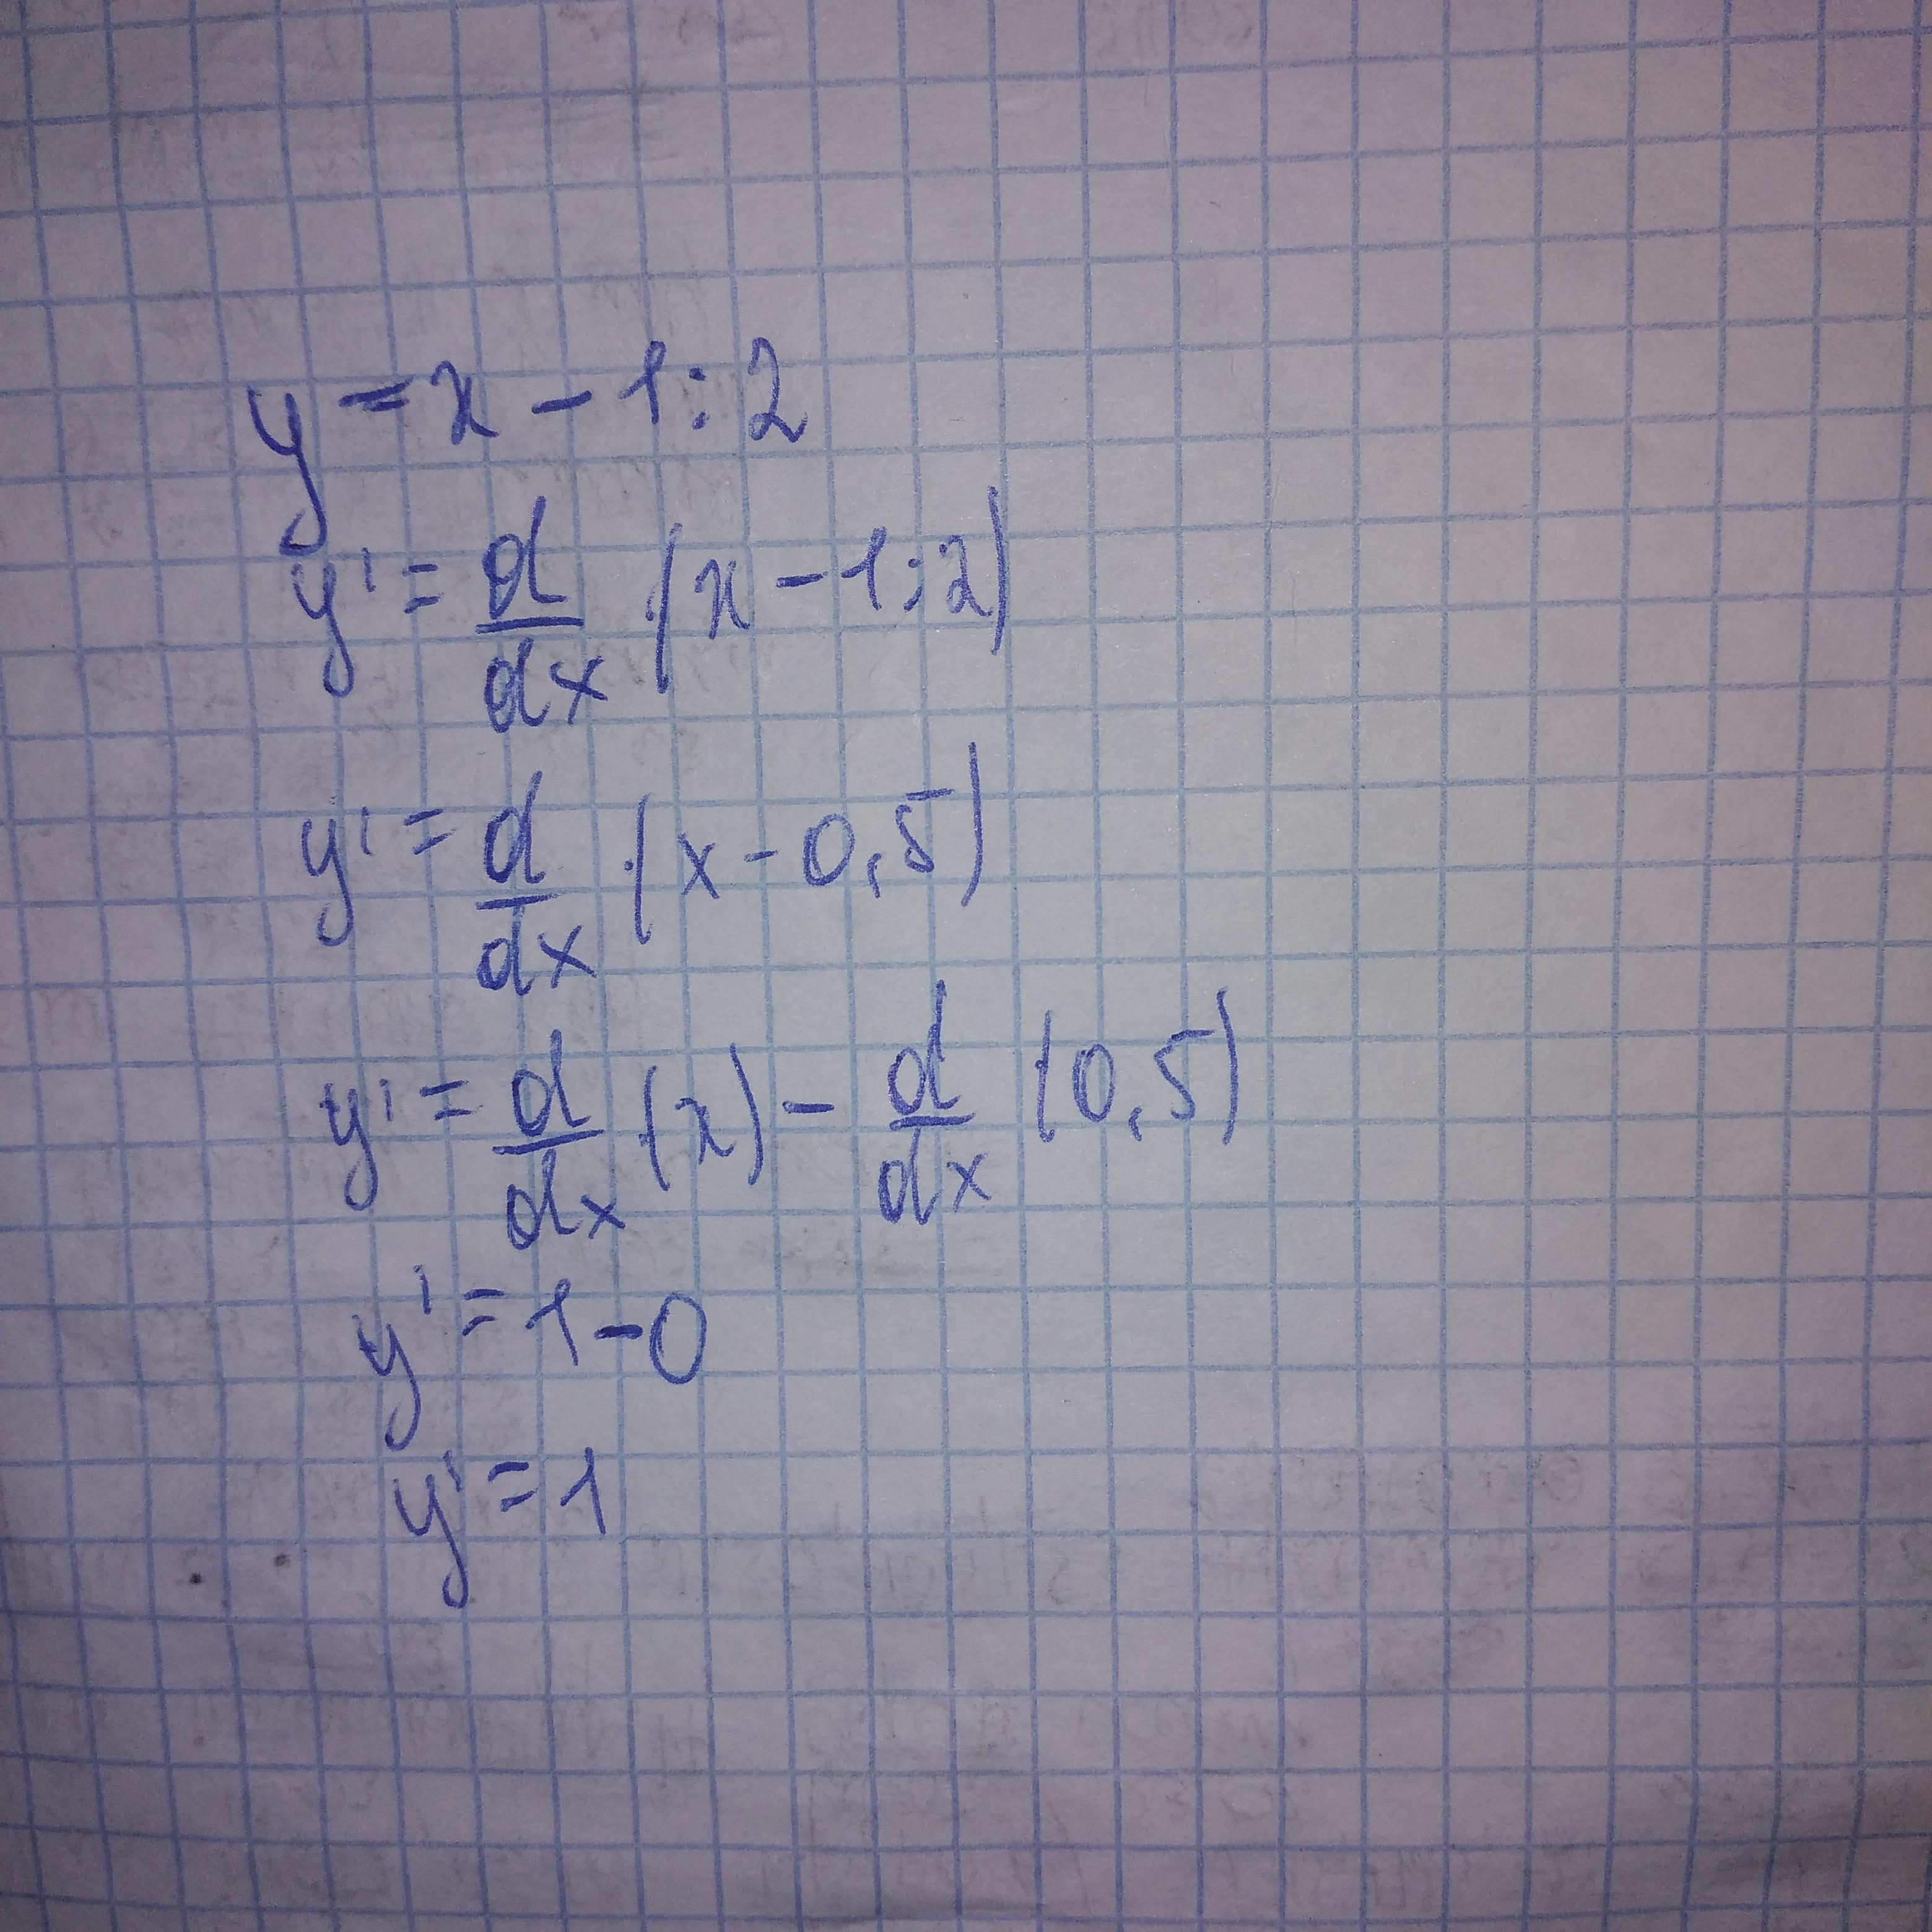 y = x - 1 : 2
y' = d/dx (x - 1 : 2)
y' = d/dx (x - 0,5)
y' = d/dx (x) - d/dx (0,5)
y' = 1 - 0
y' = 1